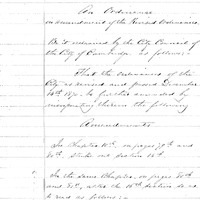 An Ordinance
in amendment of the Revised Ordinances.
Be it ordained by the City Council of
the City of Cambridge as follows:
That the ordinances of the
City as revised and passed December
14th 1870. be further amended by
incorporating therein the following
Amendments
In Chapter 10th, on pages 79th and
80th, strike out section 16th
In the same Chapter, on pages 80th
and 81st, alter the 18th section so as
to read as follows: